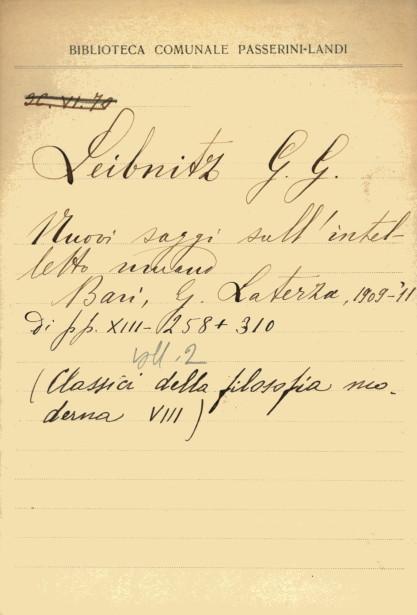 BIBLIOTECA COMUNALE PASSERINI-LANDI
Leibnitz G. G.
Nuovi saggi sull'intel-
letto umano
Bari, G. Laterza, 1909-'11
di pp. XIII-258+310
voll. 2
(Classici della filosofia mo-
derna VIII)